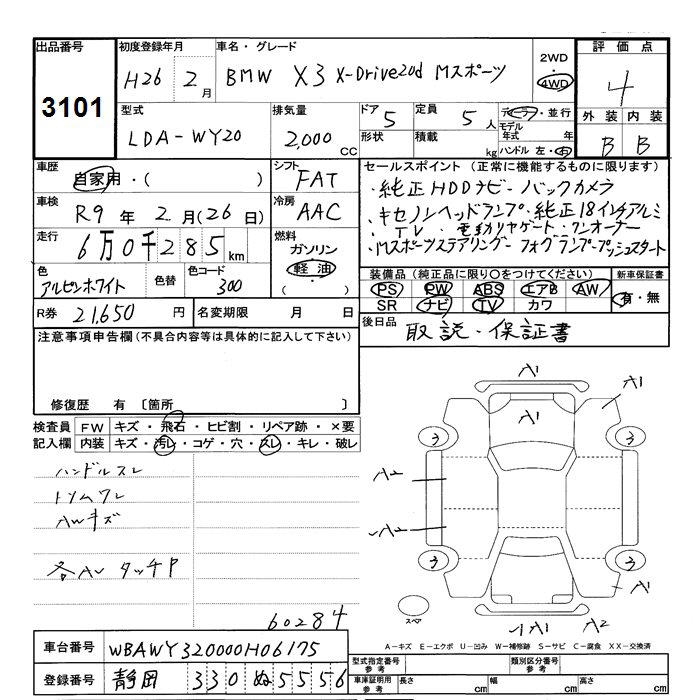 出品番号 初度登録年月 車名・グレード 2WD 評価点
3101 H26 2月 BMW X3 X-Drive20d Mスポーツ 4WD 4
型式 排気量 ドア 定員 ディーラー・並行 外装 内装
LDA-WY20 2,000CC 5 5人 モデル年式 年 B B
形状 積載 kg ハンドル 左・右
車歴 シフト セールスポイント(正常に機能するものに限ります)
自家用・( ) FAT ・純正HDDナビ・バックカメラ
車検 冷房 ・キセノンヘッドランプ・純正18インチアルミ
R9年2月(26日) AAC ・TV・電動リヤゲート・ワンオーナー
走行 燃料 ・Mスポーツステアリング・フォグランプ・プッシュスタート
6万0千285km ガソリン
軽油
( )
色 色替 色コード 装備品(純正品に限り○をつけてください) 新車保証書
アルピンホワイト 300 PS PW ABS エアB AW 有・無
SR ナビ TV カワ
R券 21,650円 名変期限 月 日 後日品 取説・保証書
注意事項申告欄(不具合内容等は具体的に記入して下さい)
修復歴 有 〔箇所 〕
検査員 FW キズ・飛石・ヒビ割・リペア跡・×要
記入欄 内装 キズ・汚レ・コゲ・穴・スレ・キレ・破レ
ハンドルスレ
トリムワレ
AWキズ
各AU タッチP
60284
A1 A1
A1
3 3
A2
A2
3 3
A1
スペア A1 A2
A-キズ E-エクボ U-凹み W-補修跡 S-サビ C-腐食 XX-交換済
車台番号 WBAWY320000H06175 型式指定番号 参考 類別区分番号 参考
登録番号 静岡 330 ぬ 5556 車庫証明用 参考 長さ cm 幅 cm 高さ cm